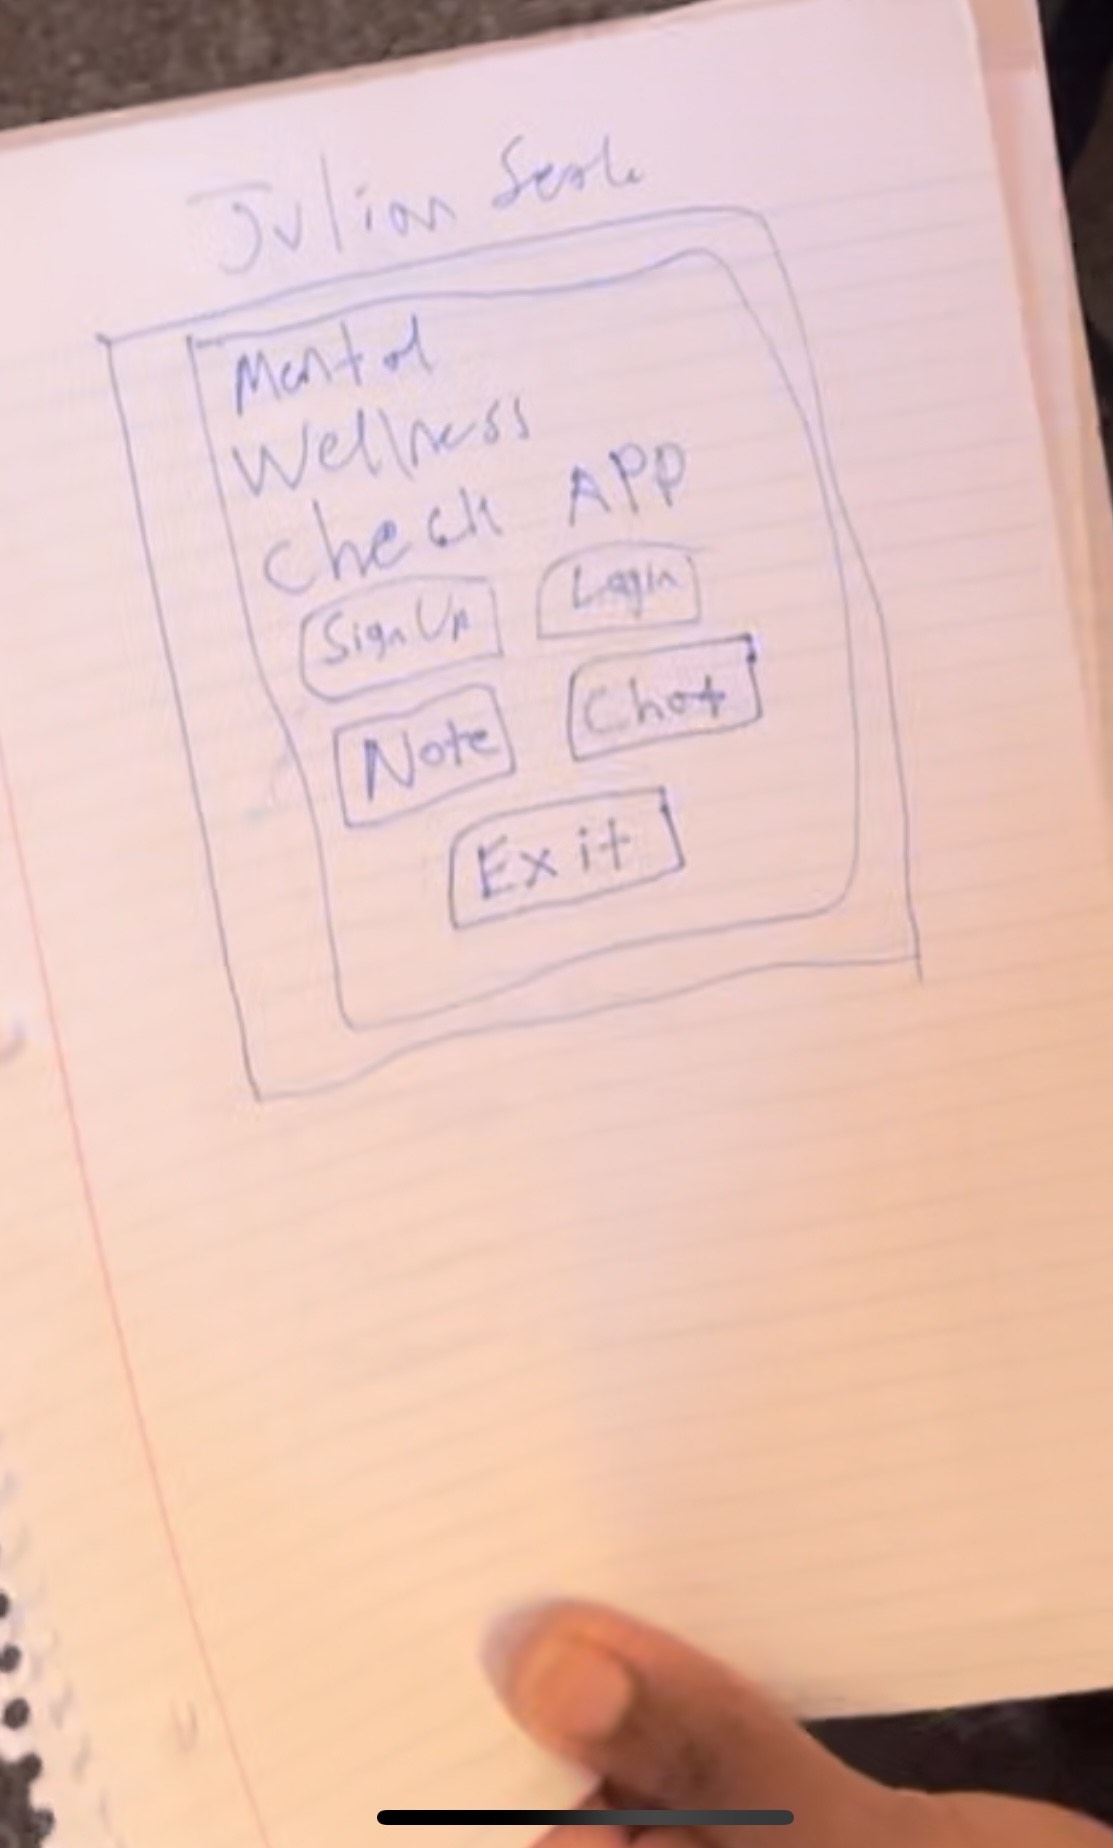 Julian
Mental
Wellness
Check APP
Sign Up Login
Note Chat
Exit